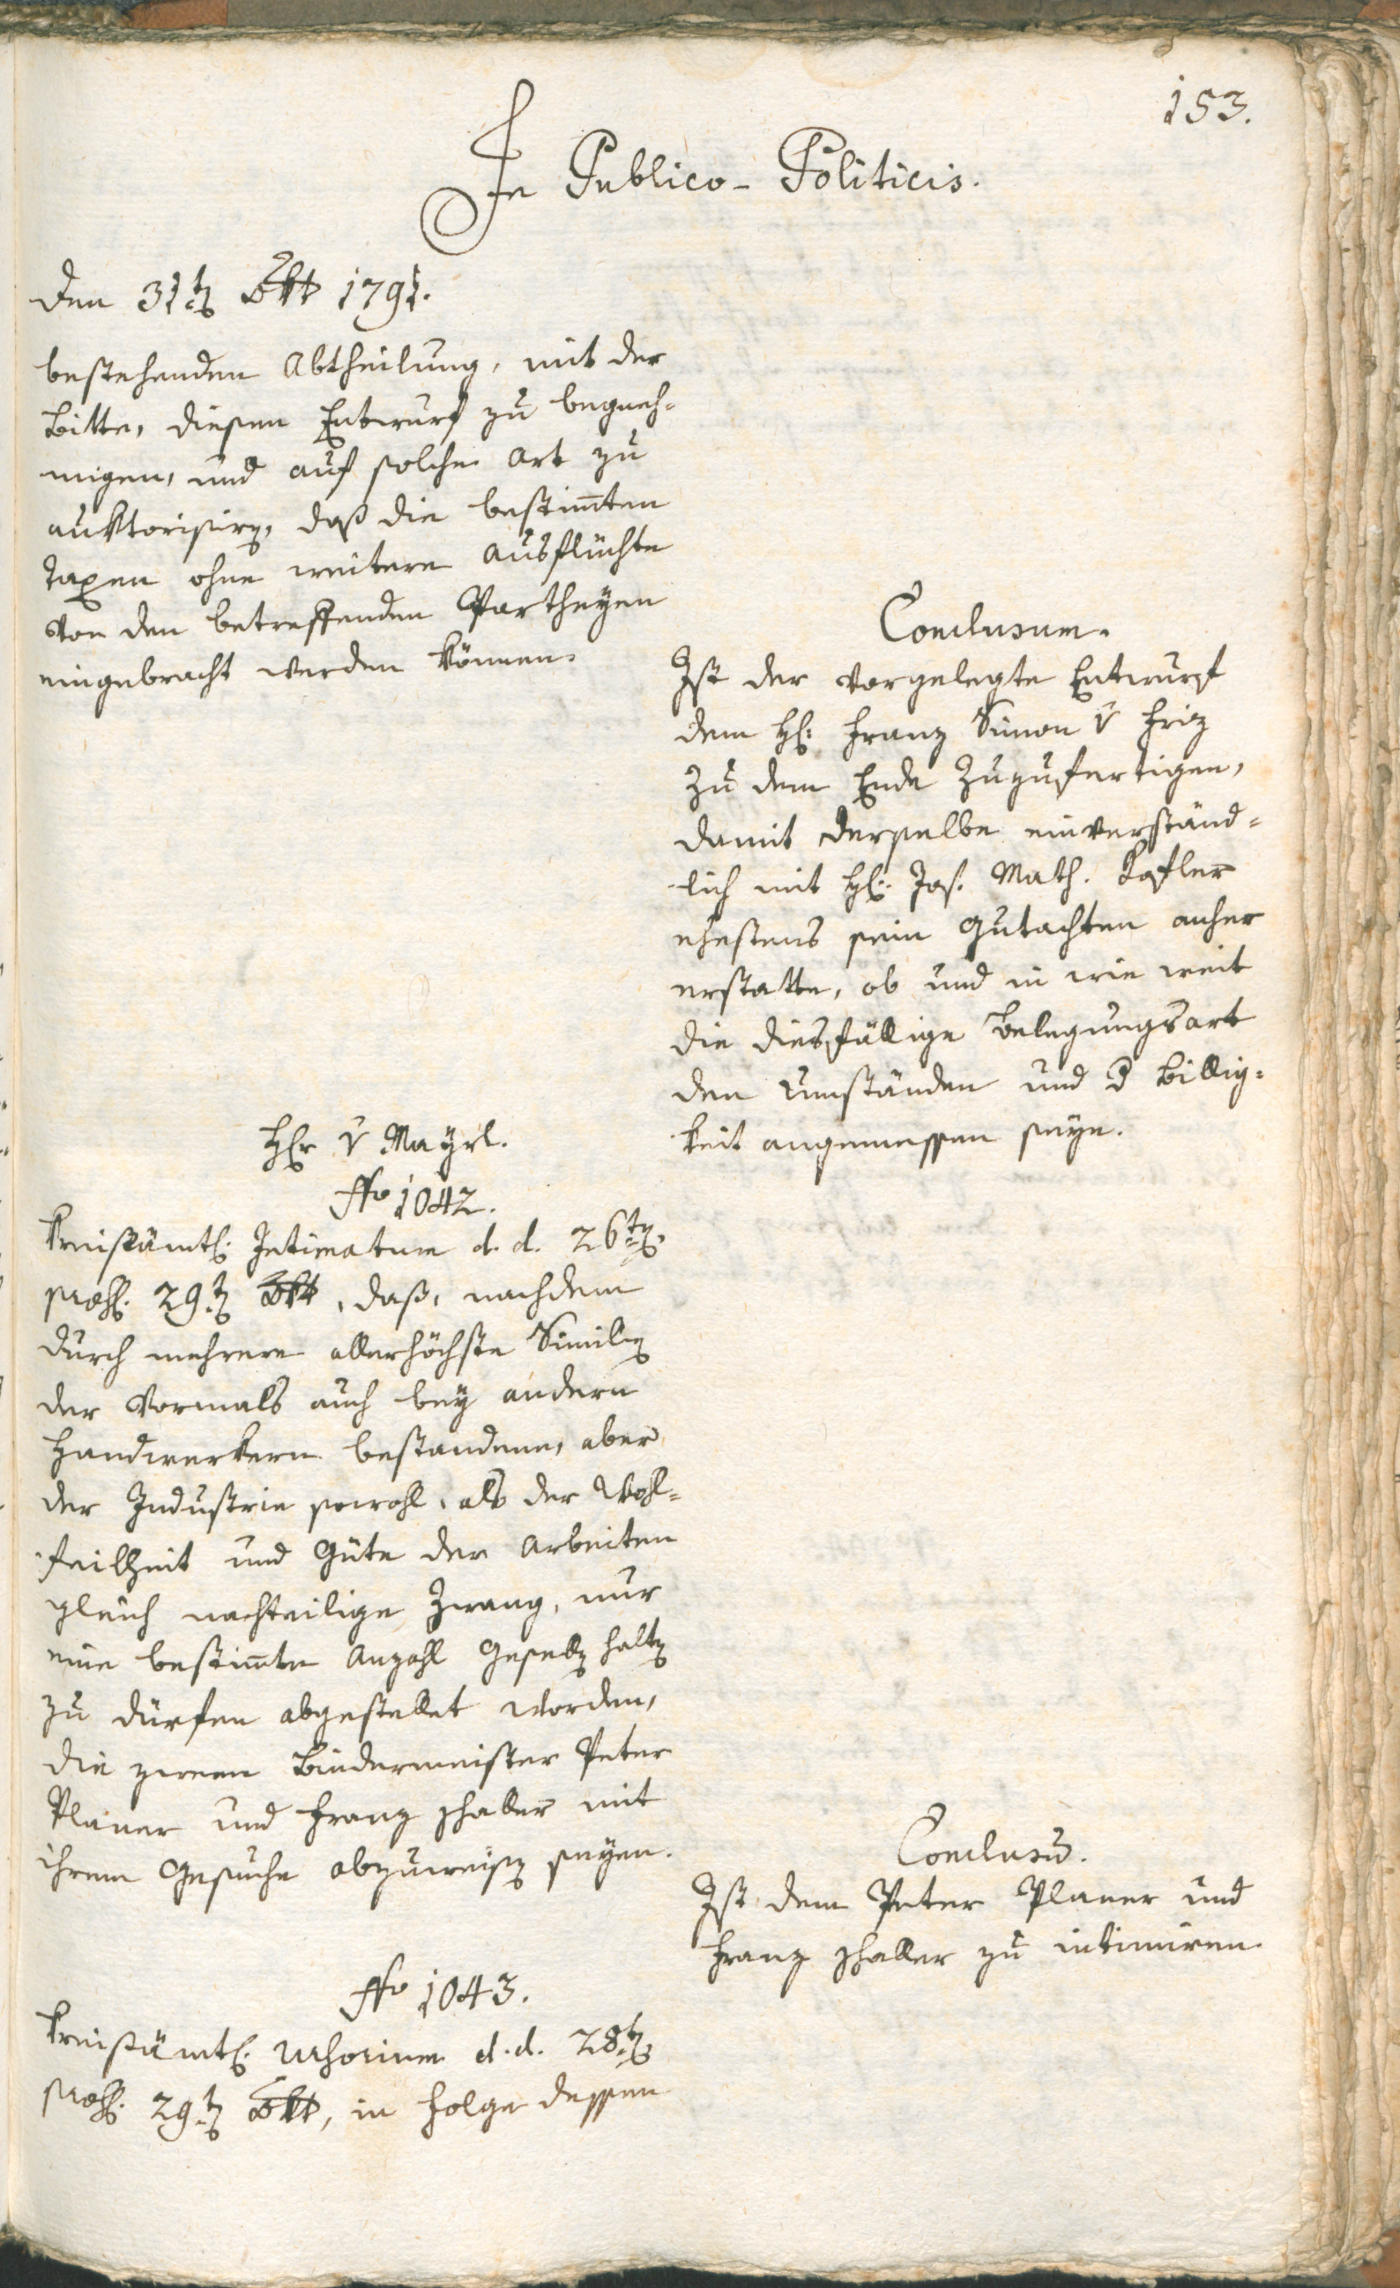 153.
In Publico-Politicis.
den 31ten 8ber 1791.
bestehenden Abtheilung, mit der
Bitte, diesen Entwurf zu begneh-
migen, und auf solche Art zu
auktorisiren, daß die bestimten
Taxen ohne weitere Ausflüchte
von den betreffenden Partheyen
eingebracht werden können.
Conclusum.
Ist der vorgelegte Entwurf
dem H: Franz Simon v Friz
zu dem Ende zuzufertigen,
damit derselbe einverständ=
lich mit H: Jos. Math. Kofler
ehestens sein Gutachten anher
erstatte, ob und in wie weit
die diesfällige Belegungsart
den Umständen und d Billig=
keit angemessen seye.
Hr v Mayrl.
No 1042.
Kreisämtl. Intimatum d. d. 26ten
praes. 29ten 8ber, daß, nachdem
durch mehrere allerhöchste Similien
der vormals auch bey andern
Handwerkern bestandene, aber
der Industrie sowohl, als der Wohl=
feilheit und Güte der Arbeiten
gleich nachteilige Zwang, nur
eine bestimte Anzahl Gesellen halten
zu dürfen abgestellet worden,
die zween Bindermeister Peter
Planer und Franz Schaller mit
ihrem Gesuche abzuweisen seyen.
Conclusum.
Ist dem Peter Planer und
Franz Schaller zu intimiren.
No 1043.
Kreisämtl. d. d. 28ten
praes. 29ten 8ber, in Folge dessen